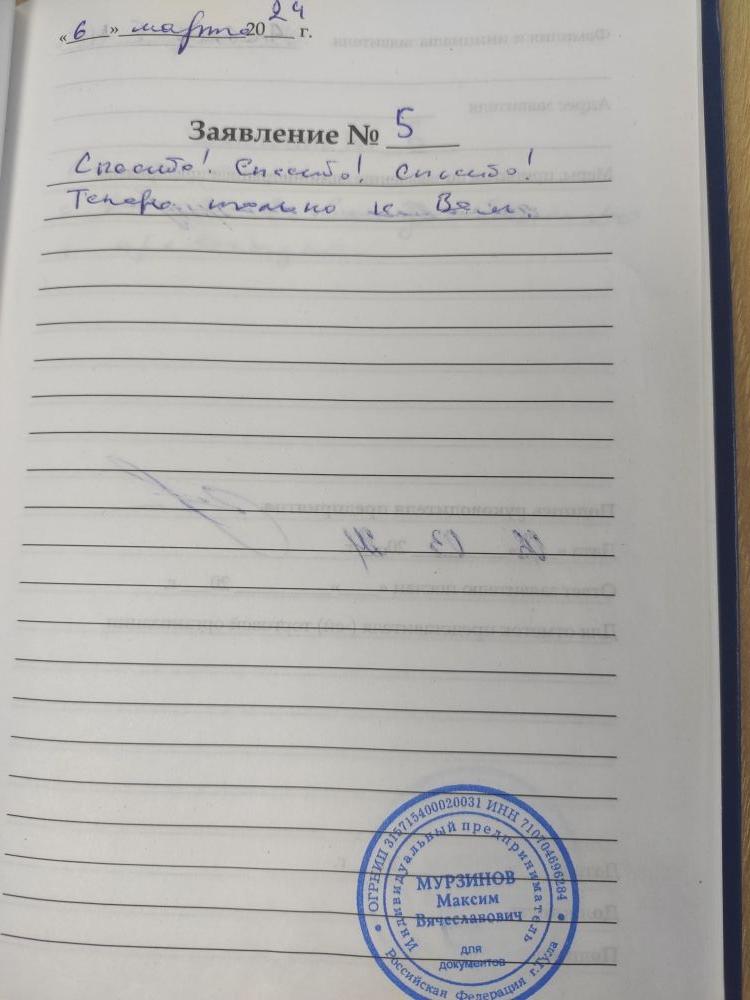 « 6 » марта 2024 г.
Заявление № 5
Спасибо! Спасибо! Спасибо!
Теперь только к Вам.
ОГРНИП 315715400020031 ИНН 710704696284
Индивидуальный предприниматель
МУРЗИНОВ
Максим
Вячеславович
для
документов
Российская Федерация г.Тула